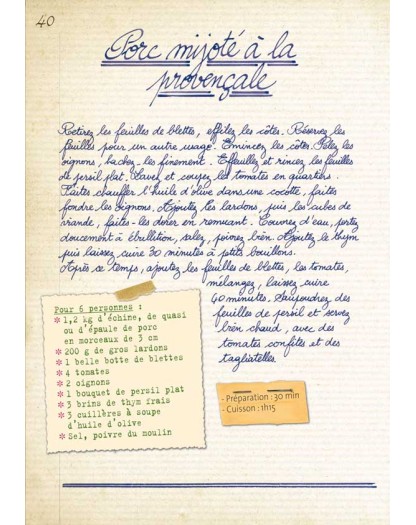 40
Porc mijoté à la
provençale
Retirez les feuilles de blettes, effilez les côtes. Réservez les
feuilles pour un autre usage. Émincez les côtes. Pelez les
oignons, hachez-les finement. Effeuillez et rincez les feuilles
de persil plat. Lavez et coupez les tomates en quartiers.
Faites chauffer l'huile d'olive dans une cocotte, faites
fondre les oignons. Ajoutez les lardons, puis les cubes de
viande, faites-les dorer en remuant. Couvrez d'eau, portez
doucement à ébullition, salez, poivrez bien. Ajoutez le thym
puis laissez cuire 30 minutes à petits bouillons.
Après ce temps, ajoutez les feuilles de blettes, les tomates,
mélangez, laissez cuire
40 minutes. Saupoudrez des
feuilles de persil et servez
bien chaud, avec des
tomates confites et des
tagliatelles.
Pour 6 personnes :
* 1,2 kg d'échine, de quasi
ou d'épaule de porc
en morceaux de 3 cm
* 200 g de gros lardons
* 1 belle botte de blettes
* 4 tomates
* 2 oignons
* 1 bouquet de persil plat
* 3 brins de thym frais
* 3 cuillères à soupe
d'huile d'olive
* Sel, poivre du moulin
- Préparation : 30 min
- Cuisson : 1h15